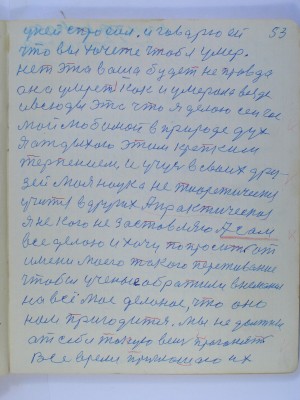 53
у ней спросил. и говорю ей
что вы хочете чтобы умер.
нет эта ваша будет не правда
она умрет как и умерала везде
и всюду Это что я делаю сейчас
мой любимой в природе дух
Я отдыхаю этим крепким
терпением и учусь в своих дру-
зей моя наука не теоретическая
учит в других А практическая
я не кого не заставляю Я сам
все делаю и хочу попросить от
имени моего такого переживание
чтобы ученые обратили внимание
на всё мое деланое, что оно
нам пригодится. мы не должны
от себя такую вещ прогонять
Все время приглашаю их